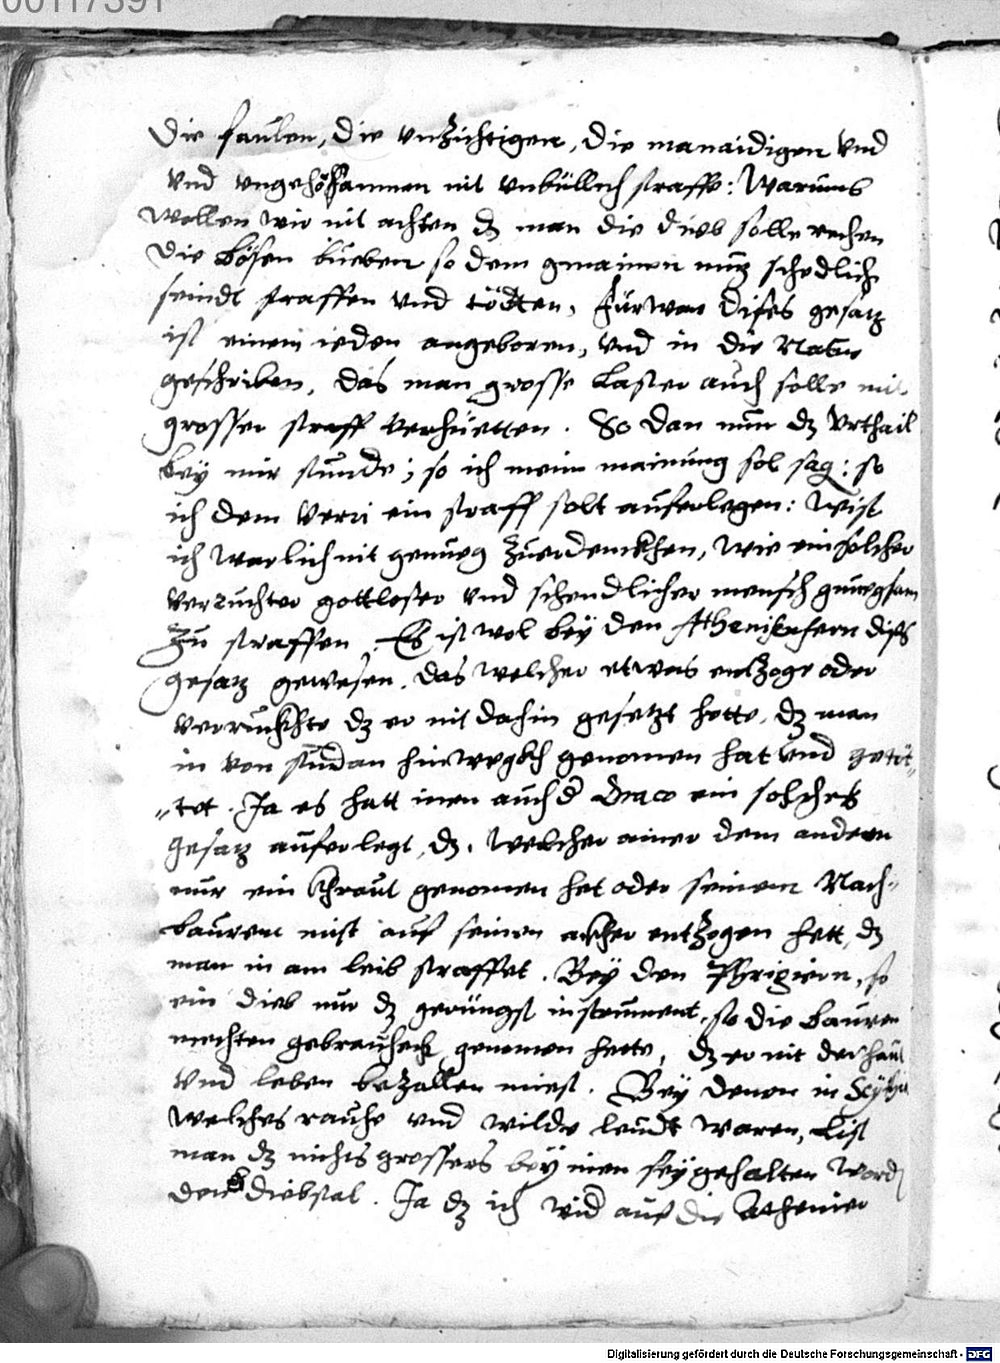 00117391
Die faulen, die vnzichtigen, die manaidigen vnd
vnd vngehorsammen nit vnbüllich straffe: Warumb
wollen wir nit achten dz man die dieb solle rechen
die bösen bueben so dem gmainen nuz schedlich
seindt straffen vnd tödten, fürwar dises gesatz
ist einem ieden angeboren, vnd in die Natur
geschriben, das man grosse laster auch solle mit
grosser straff verhüetten. So dan nun dz vrthail
bey mir stunde; so ich mein mainung sol sag: so
ich dem Verri ein straff solt auferlegen: wist
ich warlich nit genueg zuerdenckhen, wie ein solcher
verruchter gottloser vnd schendlicher mensch gnuegsam
zu straffen. Es ist wol bey den Athenisern diss
gesatz gewesen, das welcher etwas entzoge oder
verruckhte dz er nit dahin gesetzt hette, dz man
in von stund an hinwegkh genomen hat vnd getöt-
tet. Ja es hatt inen auch d Draco ein solches
gesatz auferlegt, dz, welcher ainer dem andern
nur ein khraut genomen het oder seinem Nach-
bauren mist auf seinen acker entzogen hett, dz
man in am leib straffet. Bey den Phrigiern, so
ein dieb nur dz geringst instrument, so die bauren
mechten gebrauchen, genomen hette, dz er nit der haut
vnd leben bezallen miest. Bey denen in Scythia
welches rauhe vnd wilde leudt waren, list
man dz nichts grossers bey inen sey gehalten word
den d diebstal. Ja dz ich wid auf die Athenier
Digitalisierung gefördert durch die Deutsche Forschungsgemeinschaft - DFG